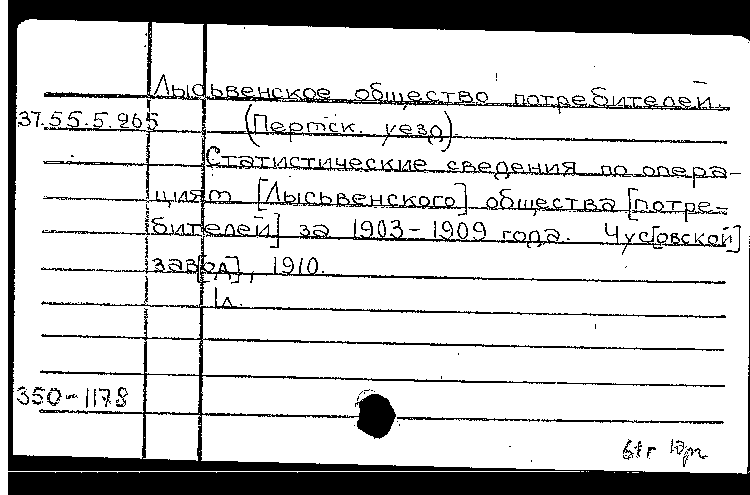 Лысьвенское общество потребителей.
37.55.5.965 (Пермск. уезд).
Статистические сведения по опера-
циям [Лысьвенского] общества [потре-
бителей] за 1903-1909 года. Чус[овской]
зав[од], 1910.
1л.
350-1178
61г